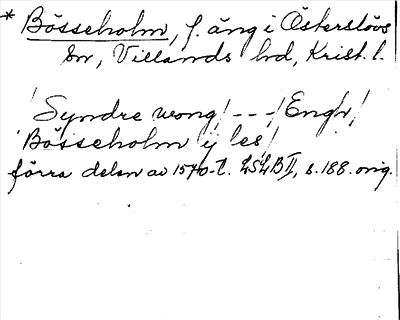 * Bösseholm, f. äng i Österslövs
sn, Villands hd, Krist. l.
/Syndre wong/ --- /Engh/
Bösseholm /ij les/
förra delen av 1570-t. LSLB II, s. 188. orig.